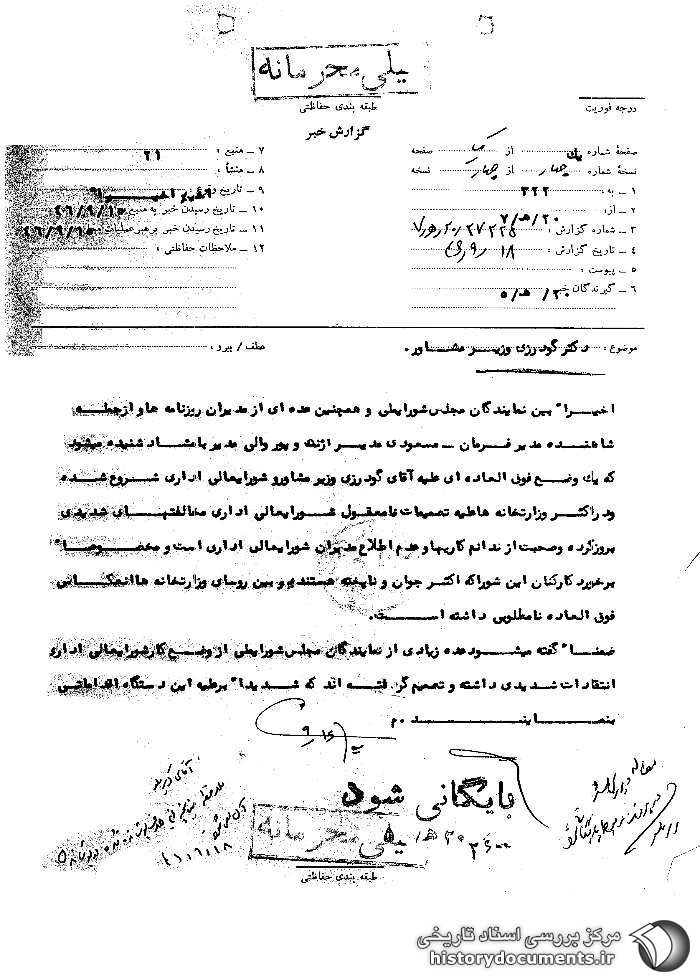 خیلی محرمانه
طبقه بندی حفاظتی
درجه فوریت
گزارش خبر
صفحهٔ شماره یک از یک صفحه
نسخهٔ شماره چهار از چهار نسخه
۱ ـ به : ۳۲۲
۲ ـ از: ۲۰/ ه‍/۷
۳ ـ شماره گزارش :
۴ ـ تاریخ گزارش :
۵ ـ پیوست :
۶ ـ گیرندگان خبر ۲۰/ ه‍/۵
۷ ـ منبع : ۲۱
۸ ـ منشأ :
۹ ـ تاریخ وقوع
۱۰ ـ تاریخ رسیدن خبر به منبع ۴۶/۹/۱۵
۱۱ ـ تاریخ رسیدن خبر برهبر عملیات ۴۶/۹/۱۵
۱۲ ـ ملاحظات حفاظتی :
موضوع : دکتر گودرزی وزیر مشاور.
عطف / پیرو :
اخیرا" بین نمایندگان مجلس شورایملی و همچنین عده ای از مدیران روزنامه ها و ازجمله
شاهنده مدیر فرمان ـ مسعودی مدیر اژنگ و پور والی مدیر بامشاد شنیده میشود
که یک وضع فوق العاده ای علیه آقای گودرزی وزیر مشاور و شورایعالی اداری شروع شده
و در اکثر وزارتخانه ها علیه تصمیمات نامعقول شورایعالی اداری مخالفتهای شدیدی
بروز کرده و صحبت از ندانم کاریها و عدم اطلاع مدیران شورایعالی اداری است و مخصوصا"
برخورد کارکنان این شورا که اکثر جوان و ناپخته هستند در بین روسای وزارتخانه ها انعکاس
فوق العاده نامطلوبی داشته است.
ضمنا" گفته میشود عده زیادی از نمایندگان مجلس شورایملی از وضع کار شورایعالی اداری
انتقادات شدیدی داشته و تصمیم گرفته اند که شدیدا" برعلیه این دستگاه اقداماتی
بنمایند. م
بایگانی شود
۲۰ ه‍ ۵
خیلی محرمانه
طبقه بندی حفاظتی
مرکز بررسی اسناد تاریخی
historydocuments.ir